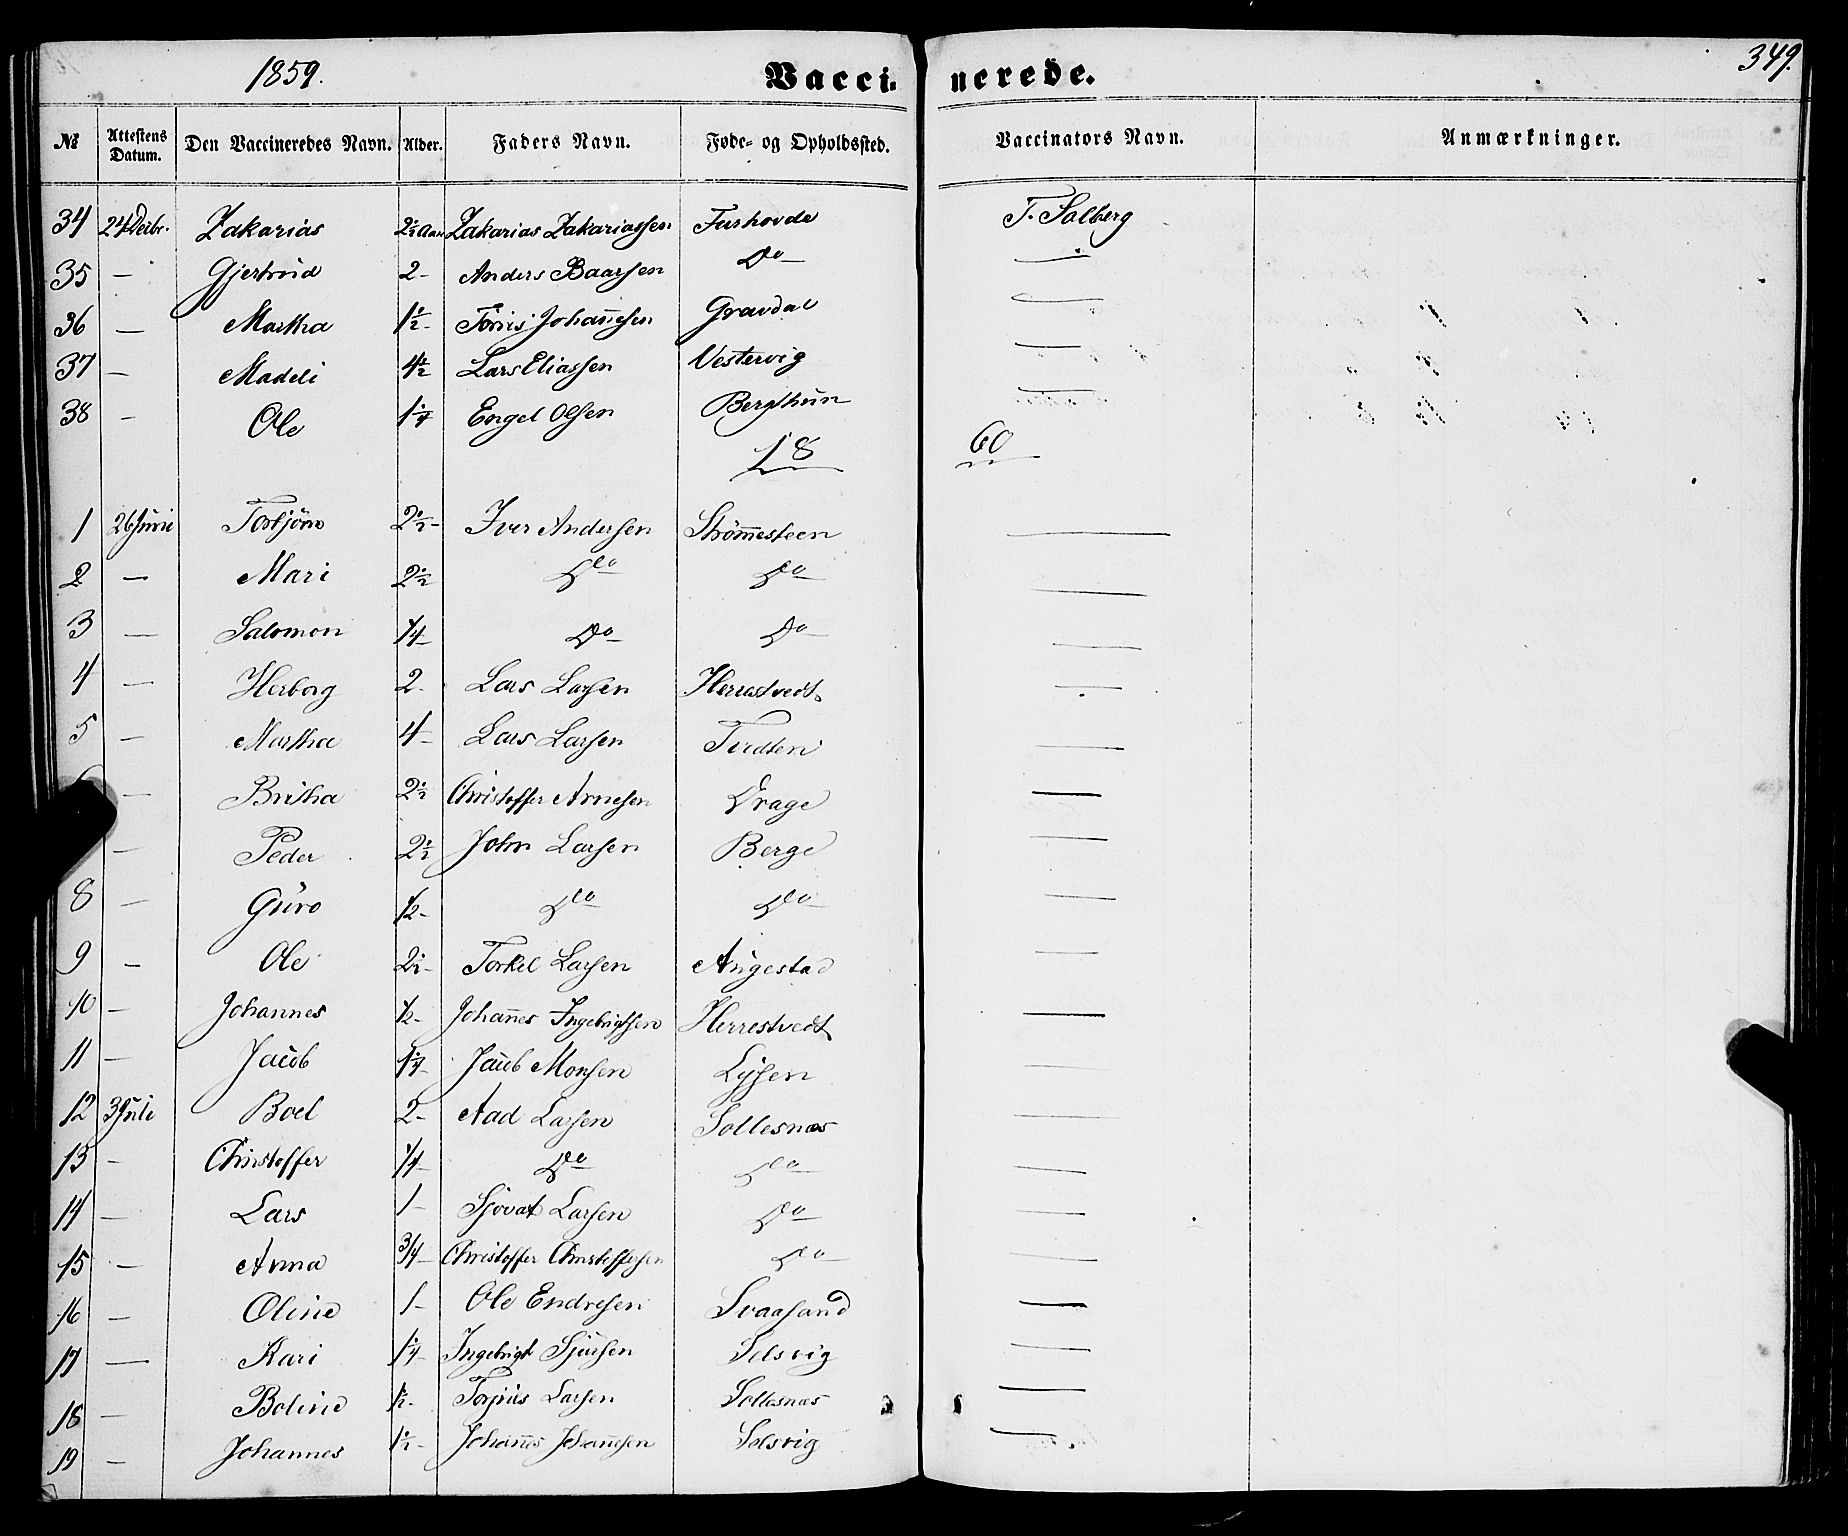 1859. Vaccinerede. 349.
№ Attestens Datum. Den Vaccineredes Navn. Alder. Faders Navn. Føde- og Opholdssted. Vaccinators Navn. Anmærkninger.
34 24 Decbr. Zakarias 2½ Aar Zakarias Zakariassen Furhovde T. Solberg
35 — Gjertrud 2- Anders Baarsen Do — —
36 — Martha 1½- Johannesen Gravdal —
37 — Madeli 4½ Lars Eliassen Vestervig —
38 — Ole 1¼ Engel Olsen Bergthun —
18 60
1 26 Juni Torbjörn 2½- Iver Andersen Strömmesteen —
2 — Mari 2½ Do — Do — —
3 — Salomon ¼- Do — Do — —
4 — Herborg 2- Lars Larsen Herrestvedt —
5 — Martha 4- Lars Larsen —
— Britha 2½ Christoffer Arnesen Drage —
— Peder 2½ John Larsen Berge —
8 — Guro ½- Do — Do — —
9 — Ole 2½- Torkel Larsen Augestad —
10 — Johannes ½- Johannes Ingebrigtsen Herrestvedt —
11 — Jacob 1¼- Jacob Monsen Lysen —
12 3 Juli Boel 2- Aad Larsen Sollesnæs —
13 — Christoffer ¼- Do Do — —
14 — Lars 1- Sjovat Larsen Do — —
15 — Anna ¾- Christoffer Christoffersen Do — —
16 — Oline 1- Ole Endresen Svaasand —
17 — Kari 1¼- Ingebrigt Sjursen Selsvig —
18 — Boline ½- Torjuls Larsen Sollesnæs —
19 — Johannes 1½- Johannes Johannesen Selsvig —